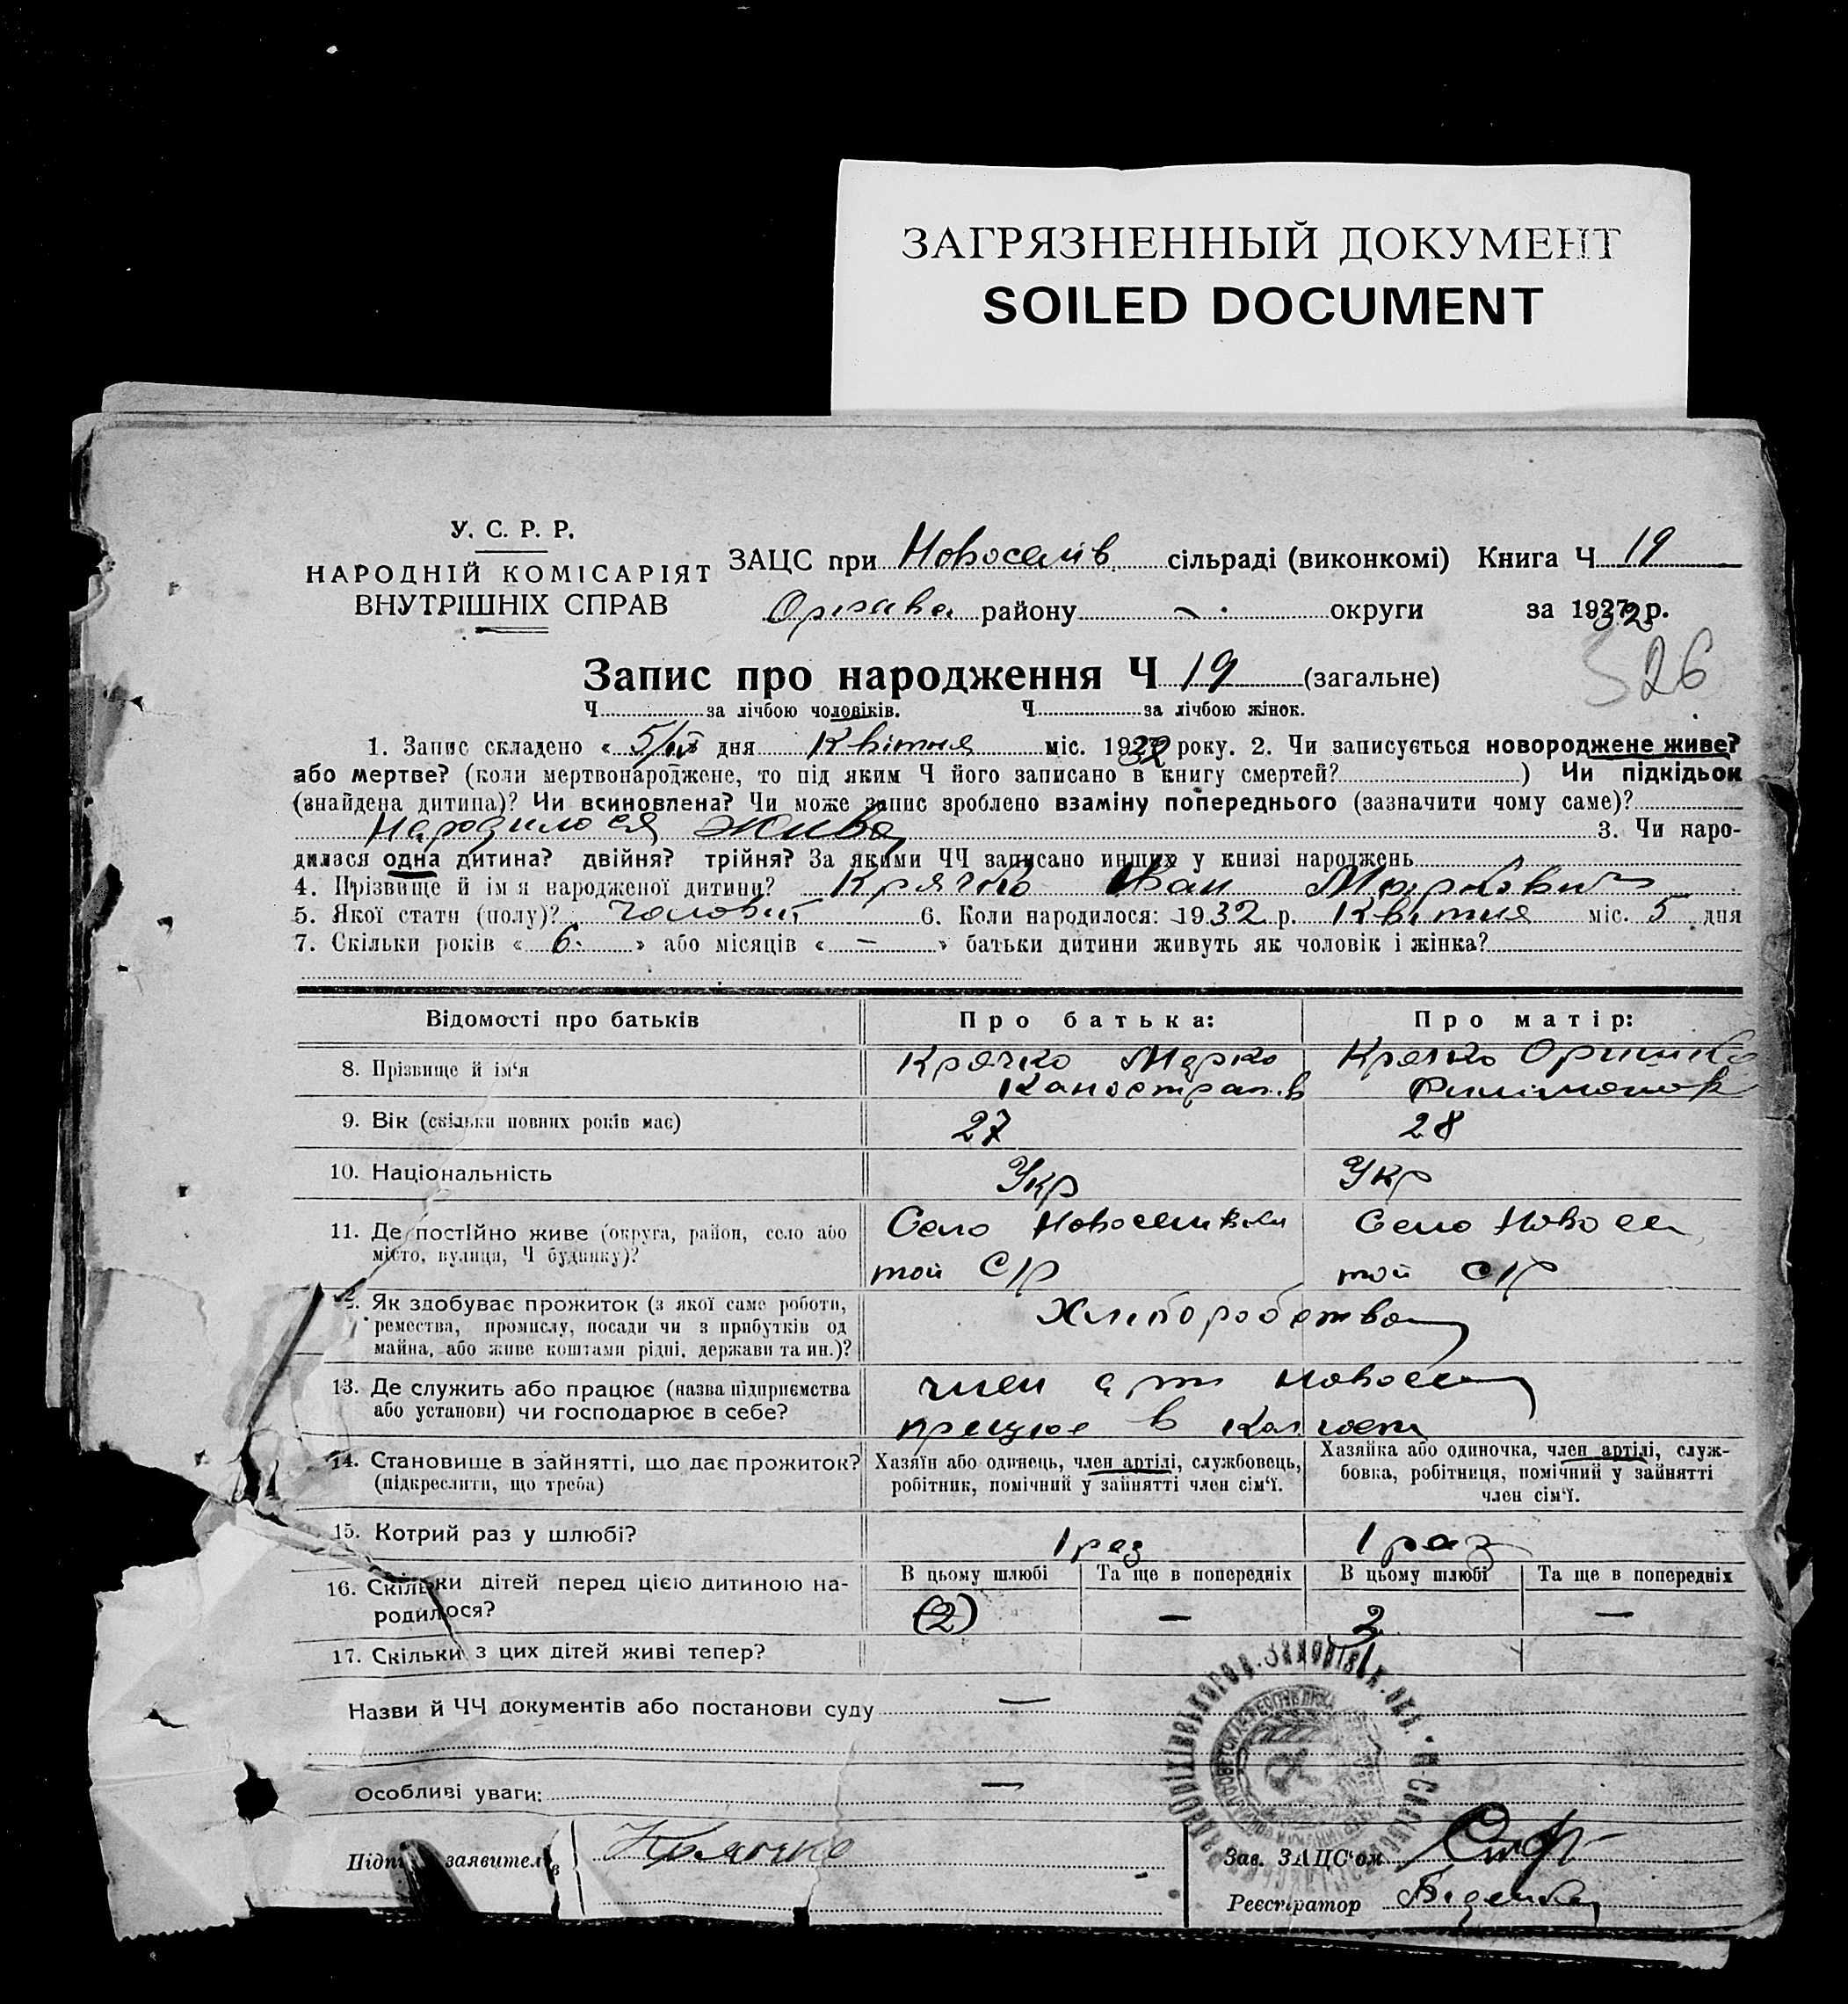 ЗАГРЯЗНЕННЫЙ ДОКУМЕНТ
SOILED DOCUMENT
У. С. Р. Р.
НАРОДНІЙ КОМІСАРІЯТ
ВНУТРІШНІХ СПРАВ
ЗАЦС при Новоселів. сільраді (виконкомі) Книга Ч 19
району - . округи за 1932 р.
Запис про народження Ч 19 (загальне)
326
Ч за лічбою чоловіків. Ч за лічбою жінок.
1. Запис складено « 5/IV » дня Квітня міс. 1932 року. 2. Чи записується новороджене живе?
або мертве? (коли мертвонароджене, то під яким Ч його записано в книгу смертей? ) Чи підкідьок
(знайдена дитина)? Чи всиновлена? Чи може запис зроблено взаміну попереднього (зазначити чому саме)?
Народилося живе 3. Чи наро-
дилася одна дитина? двійня? трійня? За якими ЧЧ записано инших у книзі народжень
4. Прізвище й ім'я народженої дитини? Крячко Іван Маркович
5. Якої стати (полу)? 6. Коли народилося: 1932 р. Квітня міс. 5 дня
7. Скільки років « 6 » або місяців « — » батьки дитини живуть як чоловік і жінка?
Відомості про батьків Про батька: Про матір:
8. Прізвище й ім'я Крячко Марко Крячко
9. Вік (скільки повних років має) 27 28
10. Національність Укр Укр
11. Де постійно живе (округа, район, село або Село Село Новосел
місто, вулиця, Ч будинку)? той С/р той С/р
12. Як здобуває прожиток (з якої саме роботи, Хліборобство
ремества, промислу, посади чи з прибутків од
майна, або живе коштами рідні, держави та ин.)?
13. Де служить або працює (назва підприємства член арт
або установи) чи господарює в себе? працює в
14. Становище в зайнятті, що дає прожиток? Хазяїн або одинець, член артілі, службовець, Хазяйка або одиночка, член артілі, служ-
(підкреслити, що треба) робітник, помічний у зайнятті член сім'ї. бовка, робітниця, помічний у зайнятті
член сім'ї.
15. Котрий раз у шлюбі? 1 раз 1 раз
16. Скільки дітей перед цією дитиною на- В цьому шлюбі Та ще в попередніх В цьому шлюбі Та ще в попередніх
родилося? (2) — 2 —
17. Скільки з цих дітей живі тепер? 1
Назви й ЧЧ документів або постанови суду —
Особливі уваги: —
Підпис заявителів Крячко Зав. ЗАЦС'ом
Реєстратор